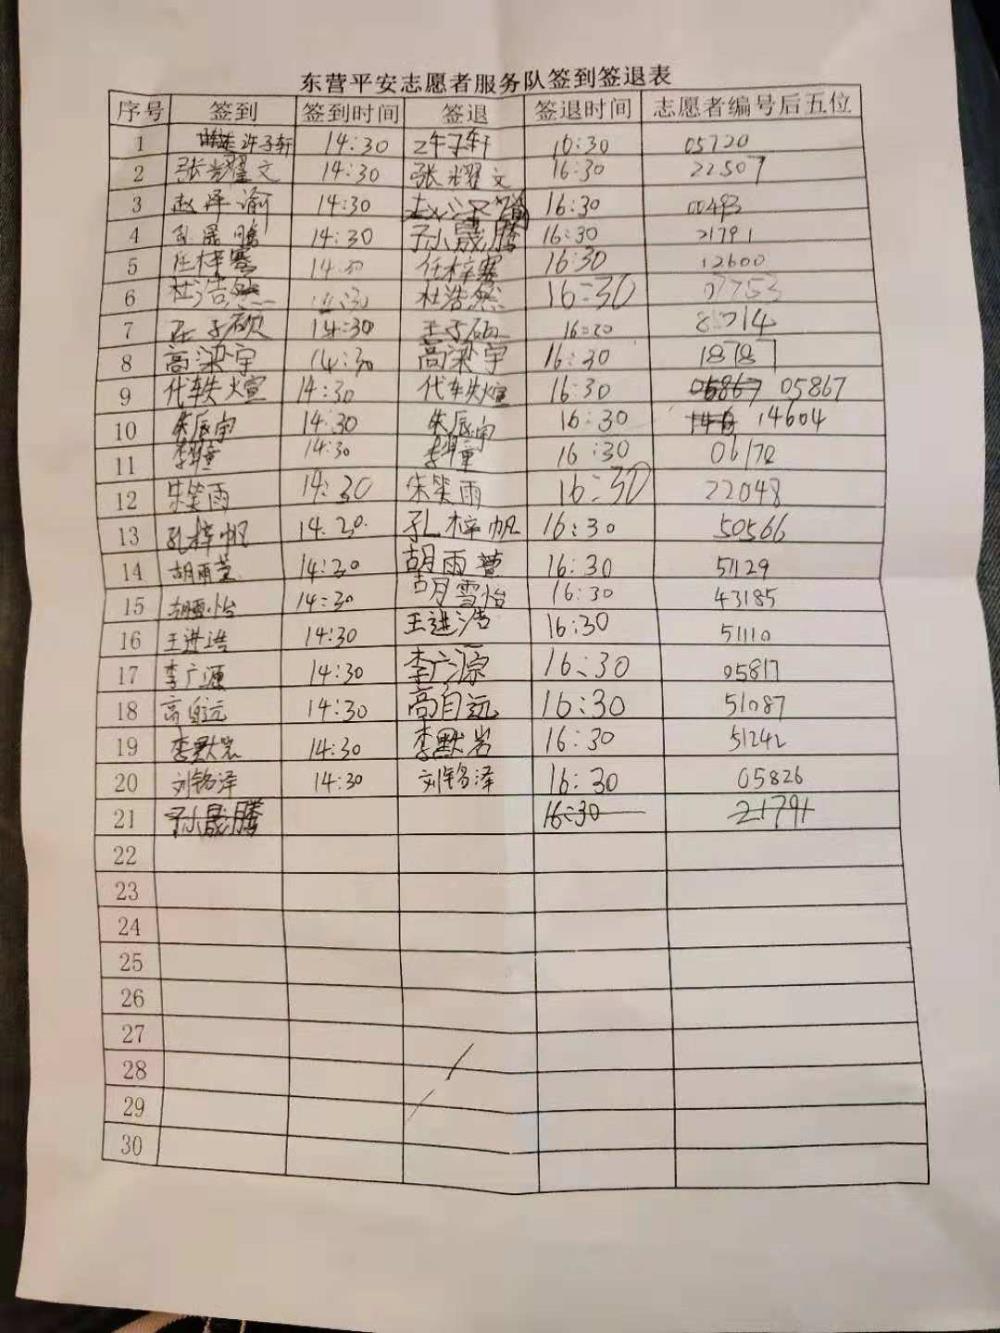 东营平安志愿者服务队签到签退表
序号 签到 签到时间 签退 签退时间 志愿者编号后五位
1 许子轩 14:30 许子轩 16:30 05720
2 张耀文 14:30 张耀文 16:30 22507
3 赵泽渝 14:30 16:30 00493
4 孙晟腾 14:30 孙晟腾 16:30 21791
5 任梓骞 14:30 任梓骞 16:30 12600
6 杜浩然 14:30 杜浩然 16:30 07753
7 14:30 16:30
8 高梁宇 14:30 高梁宇 16:30 18787
9 代轶煊 14:30 代轶煊 16:30 05867 05867
10 朱辰宇 14:30 朱辰宇 16:30 14604
11 14:30 16:30 06170
12 朱笑雨 14:30 朱笑雨 16:30 22048
13 孔梓帆 14:30 孔梓帆 16:30 50566
14 胡雨萱 14:30 胡雨萱 16:30 51129
15 胡雪怡 14:30 胡雪怡 16:30 43185
16 王进浩 14:30 王进浩 16:30 51110
17 李广源 14:30 李广源 16:30 05817
18 高自远 14:30 高自远 16:30 51087
19 李默岩 14:30 李默岩 16:30 51242
20 刘铭泽 14:30 刘铭泽 16:30 05826
21 孙晟腾 16:30 21791
22
23
24
25
26
27
28
29
30